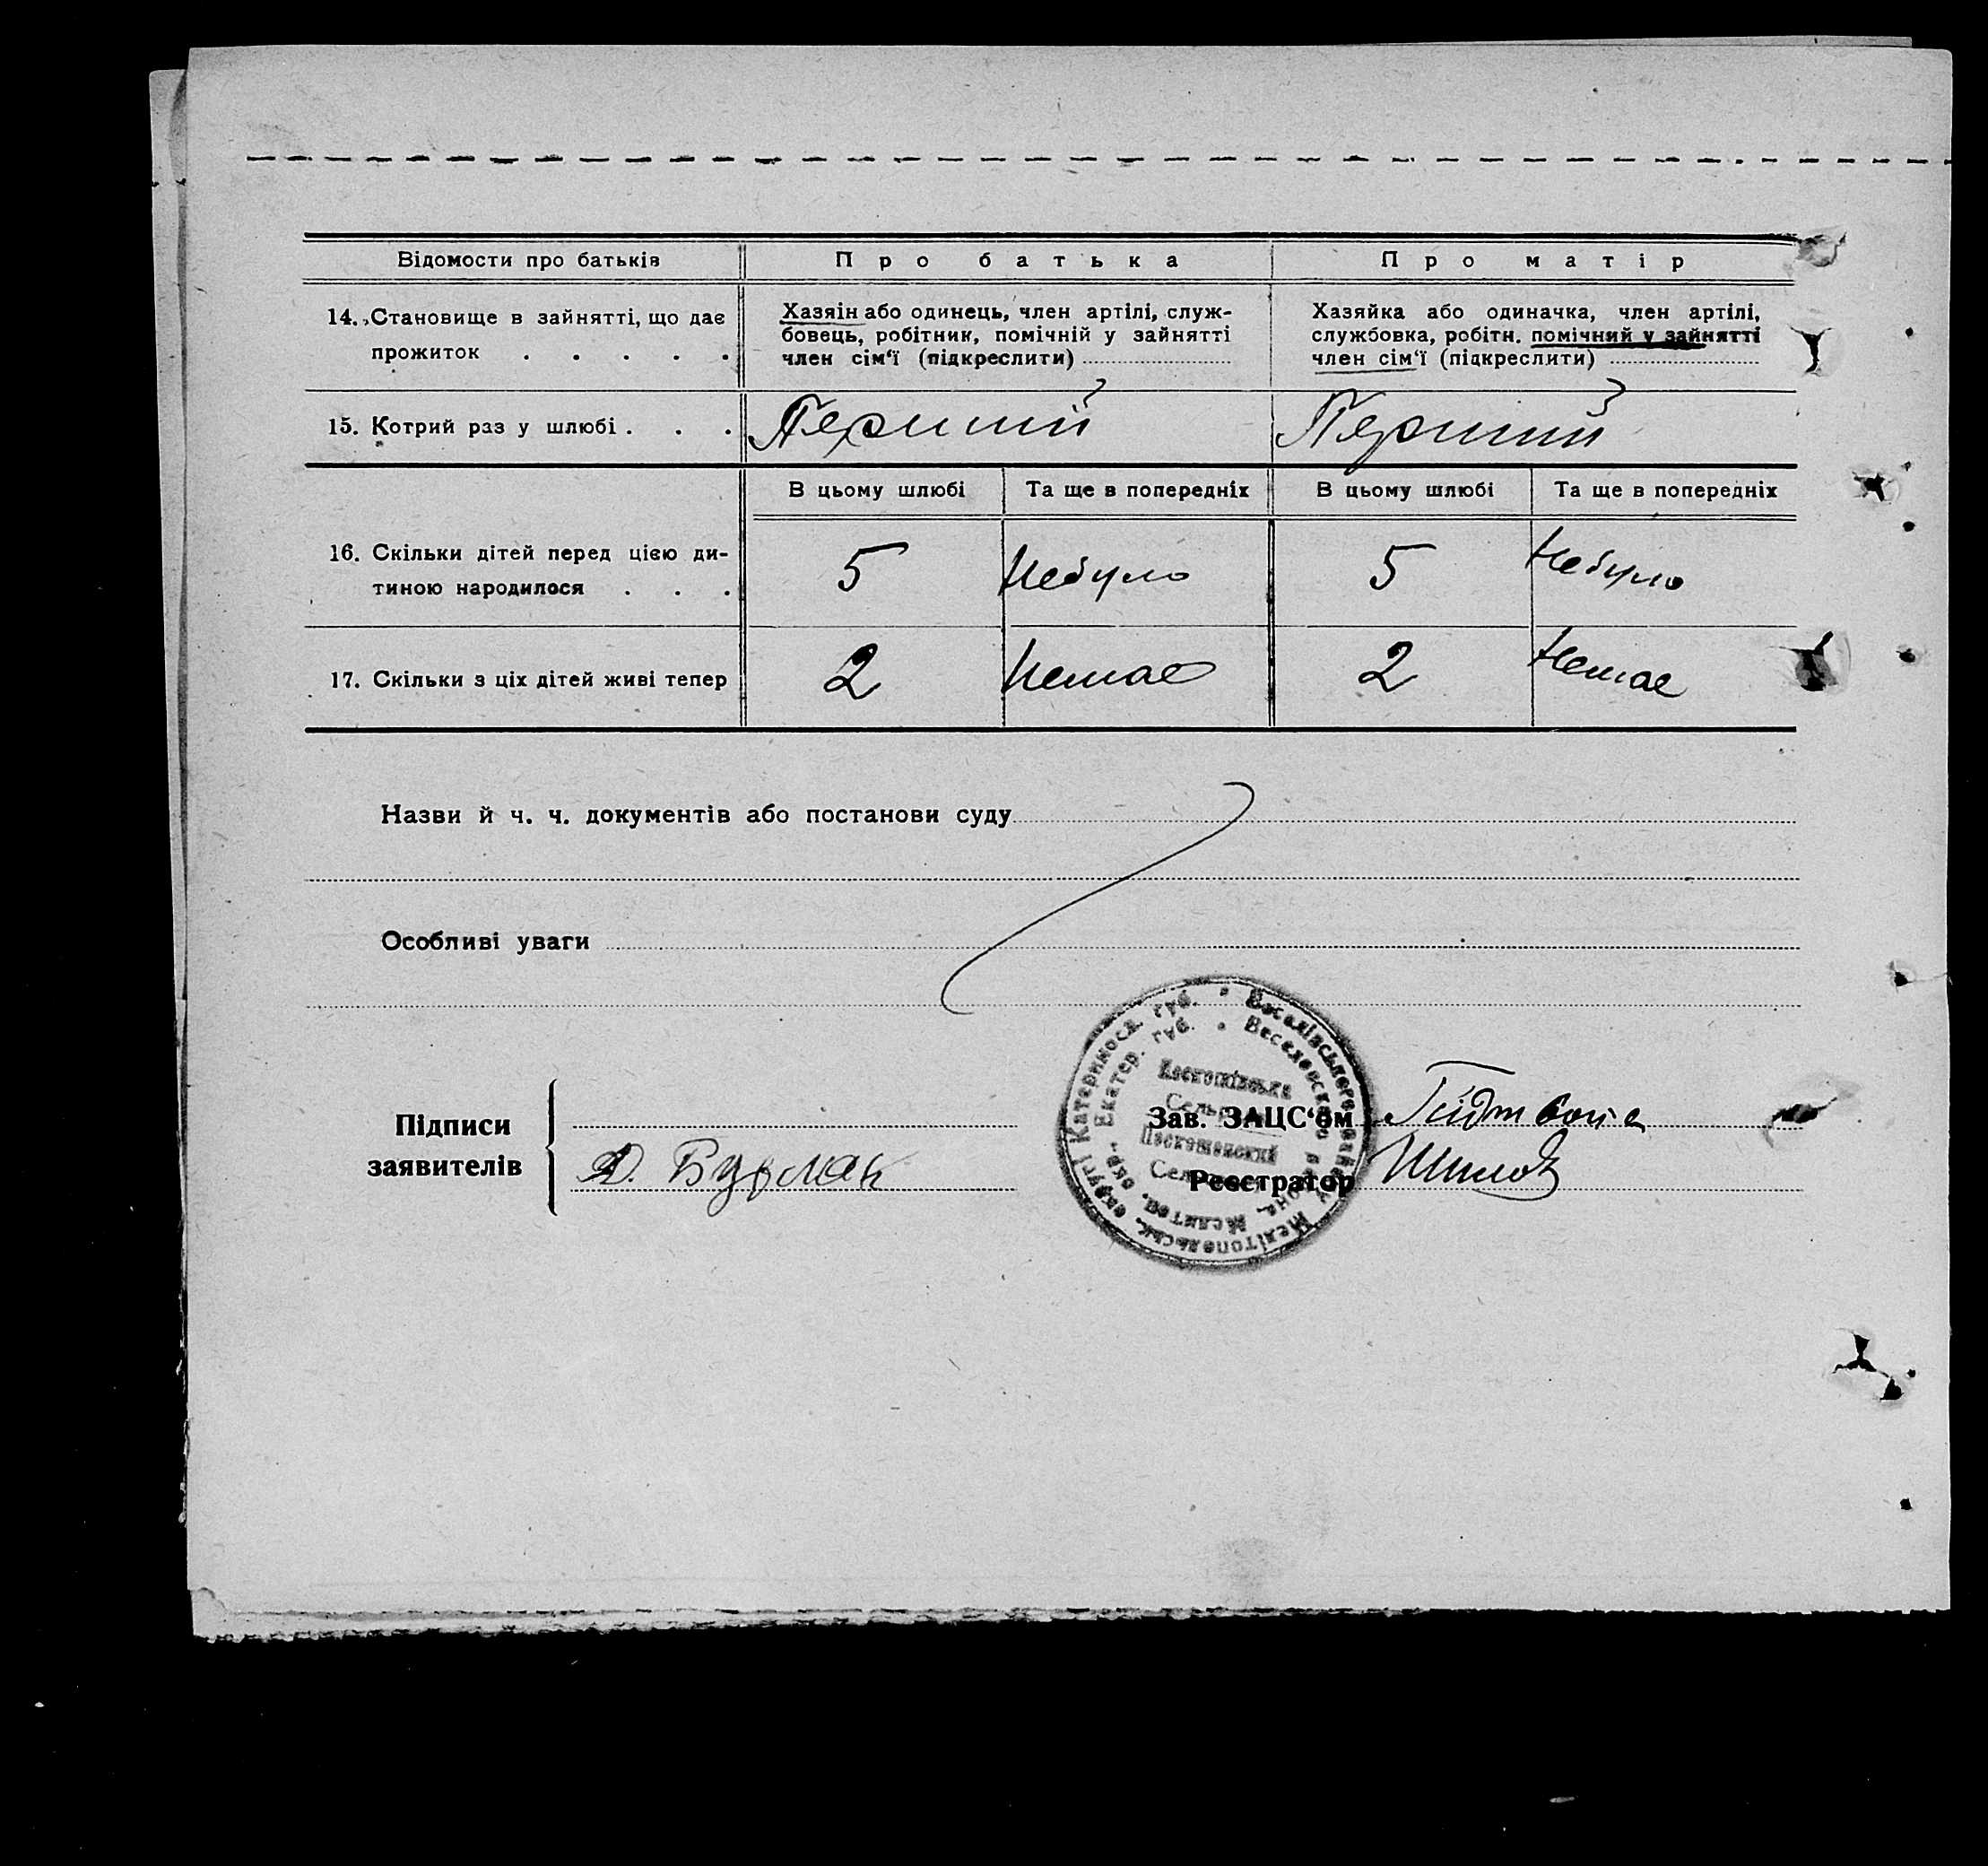 Відомости про батьків
Про батька
Про матір
14. Становище в зайнятті, що дає
прожиток . . . . .
Хазяін або одинець, член артілі, служ-
бовець, робітник, помічній у зайнятті
член сім‘ї (підкреслити)
Хазяйка або одиначка, член артілі,
службовка, робітн. помічний у зайнятті
член сім‘ї (підкреслити)
15. Котрий раз у шлюбі . . .
Перший
Перший
В цьому шлюбі
Та ще в попередніх
В цьому шлюбі
Та ще в попередніх
16. Скільки дітей перед цією ди-
тиною народилося . . .
5
Небуло
5
Небуло
17. Скільки з ціх дітей живі тепер
2
Немає
2
Немає
Назви й ч. ч. документів або постанови суду
Особливі уваги
Підписи
заявителів
Д.
Зав. ЗАЦС‘ом
Реєстратор
Веселівського району Мелітопольськ. округі Катериносл. губ.
Веселовского района, Мелитоп. окр., Екатер. губ.